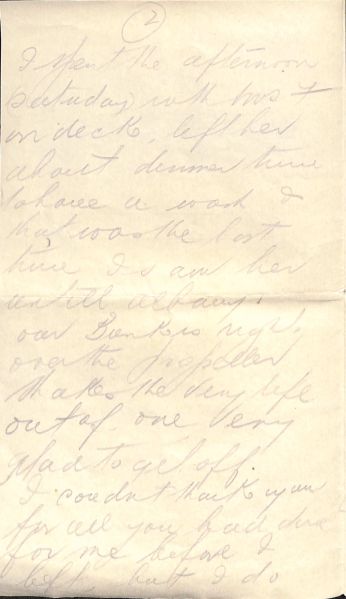 2
I spent the afternoon
Saturday with
on deck, left her
about dinner time
to have a wash &
that was the last
time I saw her
untill albany.
our Bunk is right
over the propeller
shakes the very life
out of one Very
glad to get off.
I couldn't thank you
for all you had done
for me before I
left, but I do